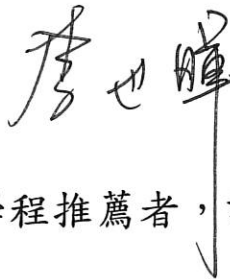 李世暉
程推薦者，